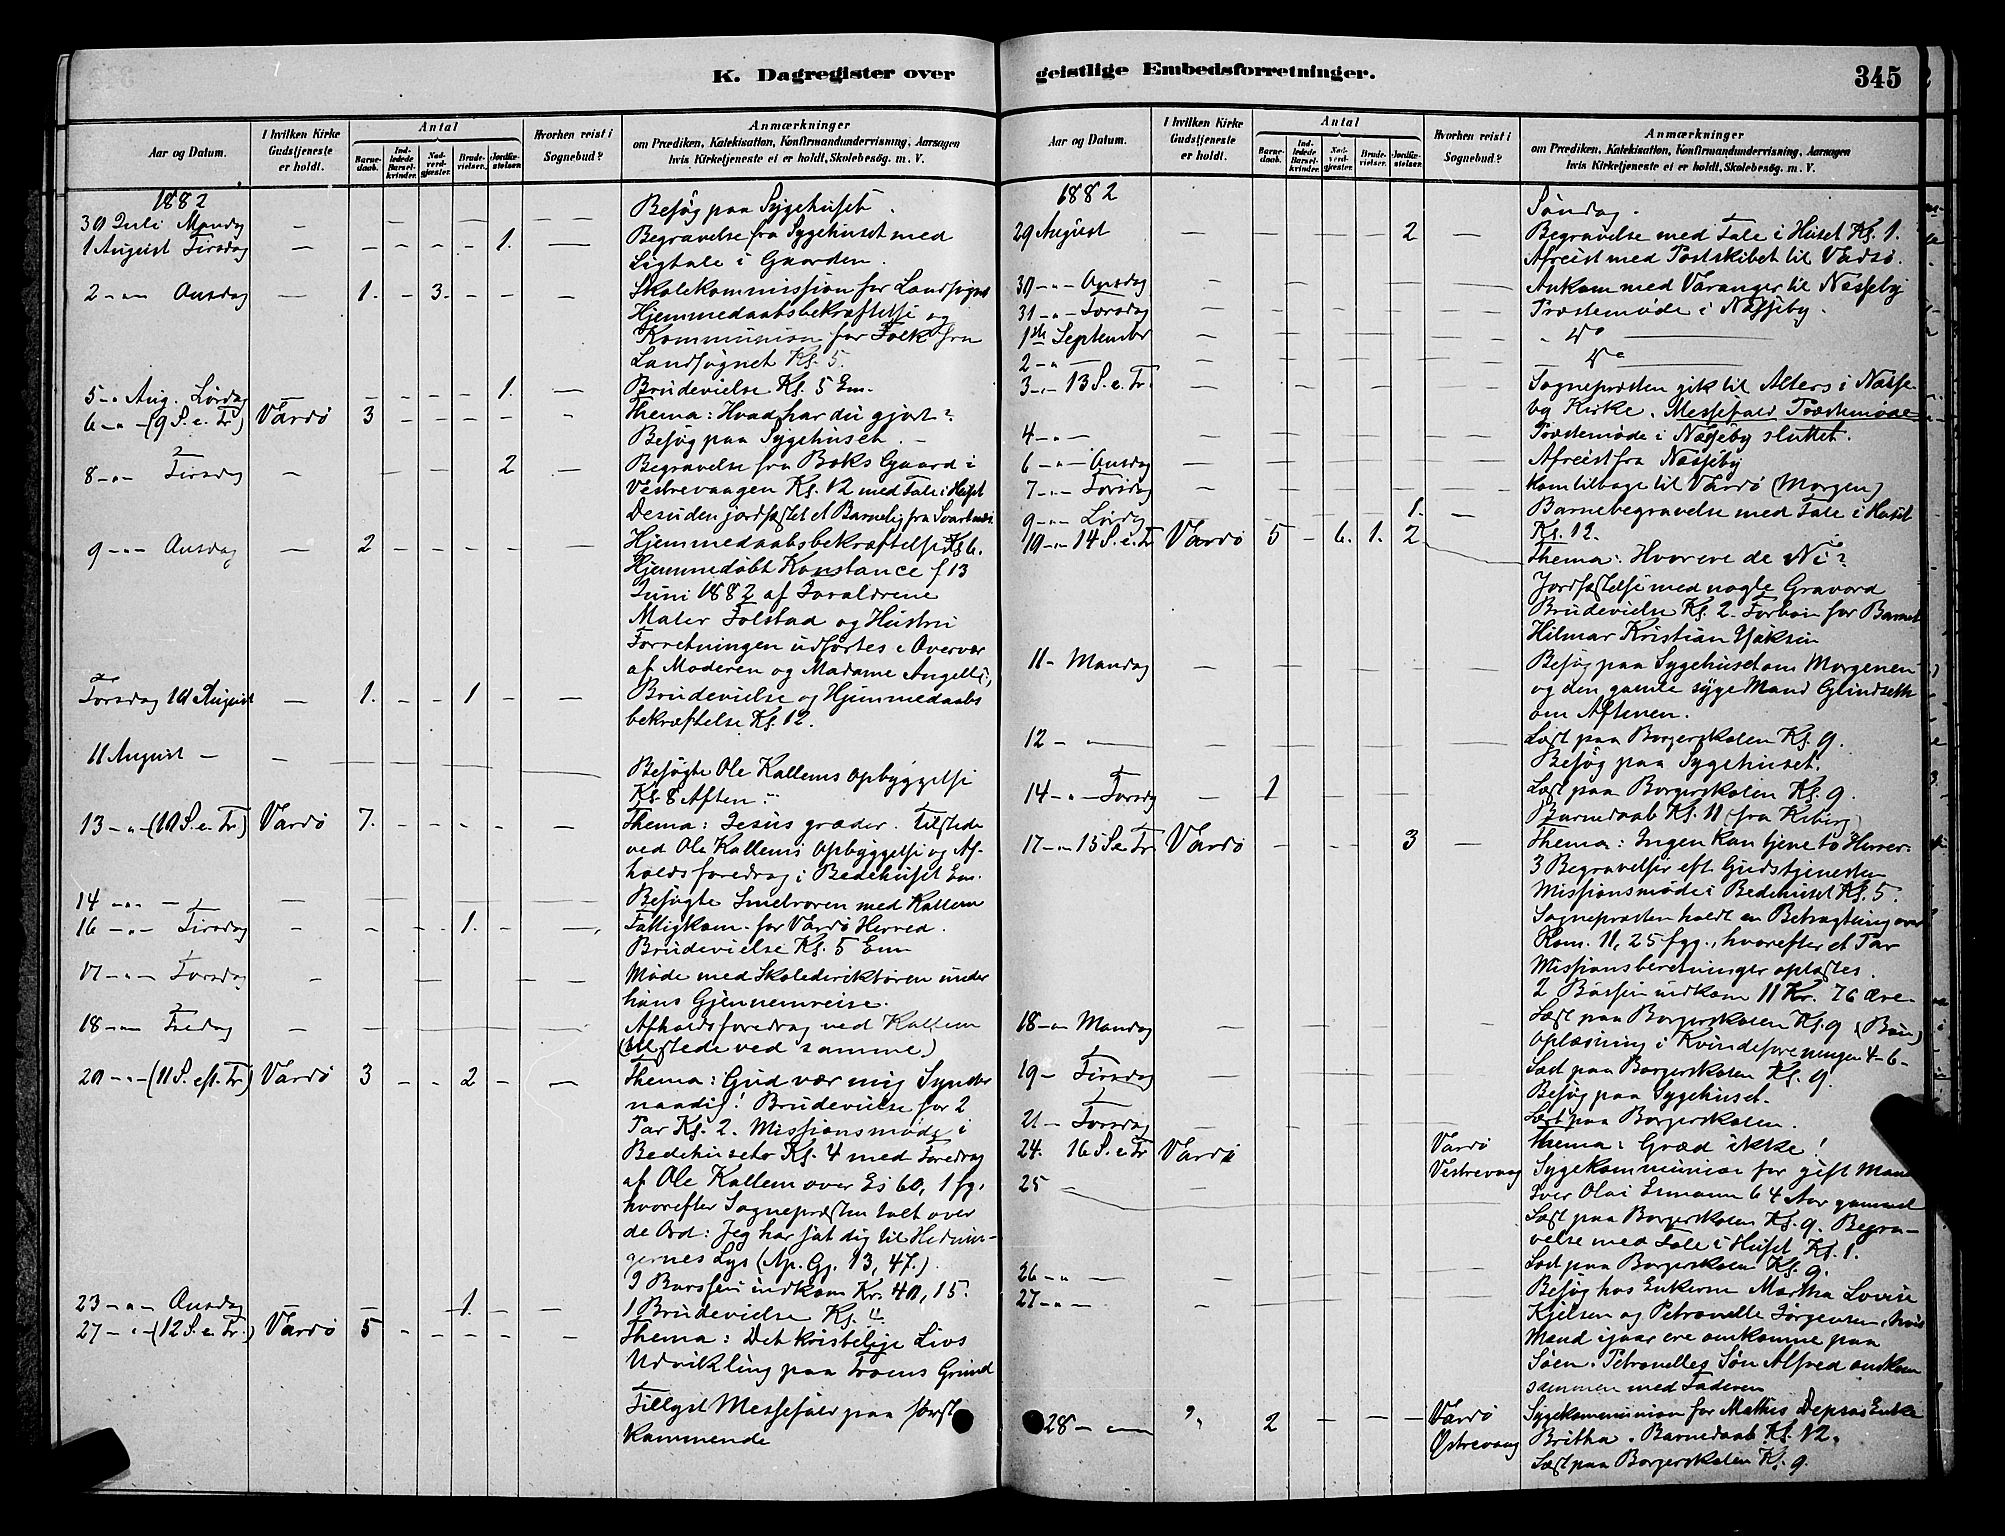 K. Dagregister over
Aar og Datum.
I hvilken Kirke Gudstjeneste er holdt.
Antal
Barnedaab.
Indledede Barselkvinder.
Nadverdgjæster.
Brudevielser.
Jordfæstelser.
Hvorhen reist i Sognebud?
Anmærkninger
om Prædiken, Katekisation, Konfirmandundervisning, Aarsagen
hvis Kirketjeneste ei er holdt, Skolebesøg. m. V.
1882
30 Juli Mandag — — — — — — — Besøg paa Sygehuset.
1 August Tirsdag — — — — — 1. — Begravelse fra Sygehuset med
Ligtale i Gaarden.
2 -"- Onsdag — 1. - 3. - - - Skolekommission for Landsognet
Hjemmedaabsbekræftelse og
Kommunion for Folk fra
Landsognet Kl. 5.
5 -" Aug. Lørdag — — — — — 1. — Brudevielse Kl. 5 Em.
6 -"- (9 S. e. Tr.) Vardø 3 - - - - - Thema: Hvad har du gjort?
Besøg paa Sygehuset. -
8 -"- Tirsdag — — — — — 2 — Begravelse fra Boks Gaard i
Vestrevaagen Kl. 12 med Tale i Huset
Desuden jordfæstet et Barnelig fra Svartnæs
9 -"- Onsdag — 2 - - - - - Hjemmedaabsbekræftelse Kl. 6.
Hjemmedøbt Konstance f 13
Juni 1882 af Forældrene
Maler Folstad og Hustru
Forretningen udførtes i Overvær
af Moderen og Madame Angell
Torsdag 10 August — 1. - - 1 - - Brudevielse og Hjemmedaabs
bekræftelse Kl. 12.
11 August - — — — — — — — Besøgte Ole Kallems Opbyggelse
Kl. 8 Aften
13 -"- (10 S. e. Tr.) Vardø 7. - - - - - Thema: Jesus græder. Tilstede
ved Ole Kallems Opbyggelse og Af-
holdsforedrag i Bedehuset Em.
14 -"- - — — — — — — — Besøgte med Kallem
16 -"- Tirsdag — — — — 1. — — Fattigkom. for Vardø Herred.
Brudevielse Kl. 5 Em
17 -"- Torsdag — — — — — — — Møde med Skoledirektøren under
hans Gjennemreise.
18 -"- Fredag — — — — — — — Afholdsforedrag ved Kallem
(tilstede ved samme)
20 -"- (11 S. eft. Tr.) Vardø 3 - - 2 - - Thema: Gud vær mig Synder
naadig! Brudevielse for 2
Par Kl. 2. Missionsmøde i
Bedehuset Kl. 4 med Foredrag
af Ole Kallem over Es 60, 1 fg.
hvorefter Sognepræsten talt over
de Ord: Jeg har sat dig til Hednin-
gernes Lys (Ap. Gj. 13, 47.)
indkom Kr. 40, 15.
23 -"- Onsdag — — — — 1. — — 1 Brudevielse Kl.
27 -"- (12 S. e. Tr.) Vardø 5 - - - - - Thema: Det kristelige Livs
Udvikling paa Troens Grund
Tillyst Messefald paa først
kommende
geistlige Embedsforretninger.
345
Aar og Datum.
I hvilken Kirke Gudstjeneste er holdt.
Antal
Barnedaab.
Indledede Barselkvinder.
Nadverdgjæster.
Brudevielser.
Jordfæstelser.
Hvorhen reist i Sognebud?
Anmærkninger
om Prædiken, Katekisation, Konfirmandundervisning, Aarsagen
hvis Kirketjeneste ei er holdt, Skolebesøg. m. V.
1882 Søndag.
29 August — — — — — 2 — Begravelse med Tale i Huset Kl. 1.
Afreist med Postskibet til Vadsø.
30 -"- Onsdag — Ankom med Varanger til Næsseby
31 -"- Torsdag — Præstemøde i Næsseby.
1ste September — " do —
2 -"- — do —
3 -"- 13 S. e. Tr. Sognepræsten gik til Alters i Næsse-
by Kirke. Messefald Præstemøde
4 -"- Præstemøde i Næsseby sluttet.
6 -"- Onsdag — Afreist fra Næsseby
7 -"- Torsdag — Kom tilbage til Vardø (Morgen)
9 -"- Lørdag — — — — — 1. — Barnebegravelse med Tale i Huset
Kl. 12.
10 -"- 14 S. e. Tr Vardø 5 - 6. 1. 2 Thema: Hvor ere de Ni?
Jordfæstelse med nogle Gravord
Brudevielse Kl. 2. Forbøn for Barnet
Hilmar Kristian
11 - Mandag — Besøg paa Sygehuset om Morgenen
og den gamle syge Mand Grindseth
om Aftenen.
12 - — Læst paa Borgerskolen Kl. 9.
Besøg paa Sygehuset.
14 -"- Torsdag — 1 — Læst paa Borgerskolen Kl. 9.
Barnedaab Kl. 11 (fra Kiberg)
17 -"- 15 S e Tr Vardø - - - - 3 — Thema: Ingen kan tjene to Herrer.
3 Begravelser eft Gudstjenesten
Missionsmøde i Bedehuset Kl. 5.
Sognepræsten holdt en Betragtning over
Rom. 11, 25 fgg., hvorefter et Par
Missionsberetninger oplæstes.
2 Bøsser indkom 11 Kr. 76 Øre-
18 -"- Mandag — Læst paa Borgerskolen Kl. 9 (Bøn)
Oplæsning i Kvindeforeningen 4-6-
19 - Tirsdag — Læst paa Borgerskolen Kl. 9.
Besøg paa Sygehuset.
21 - Torsdag — Læst paa Borgerskolen.
24. 16 S. e Tr Vardø Vardø Thema: Græd ikke!
Vestrevaag Sygekommunion for gift Mand
Iver Olai 64 Aar gammel
25 - Læst paa Borgerskolen Kl. 9. Begra-
velse med Tale i Huset Kl. 1.
26 -"- — Læst paa Borgerskolen Kl. 9.
27 -"- — Besøg hos Enkerne Martha Lovise
Kjelsen og Petronelle Jørgensen, hvis
Mænd igaar ere omkomne paa
Søen. Petronelles Søn Alfred omkom
sammen med Faderen
28 - " 2 - - - Vardø Sygekommunion for Mathis Enke
Østrevaag Britha. Barnedaab Kl. 12.
Læst paa Borgerskolen Kl. 9